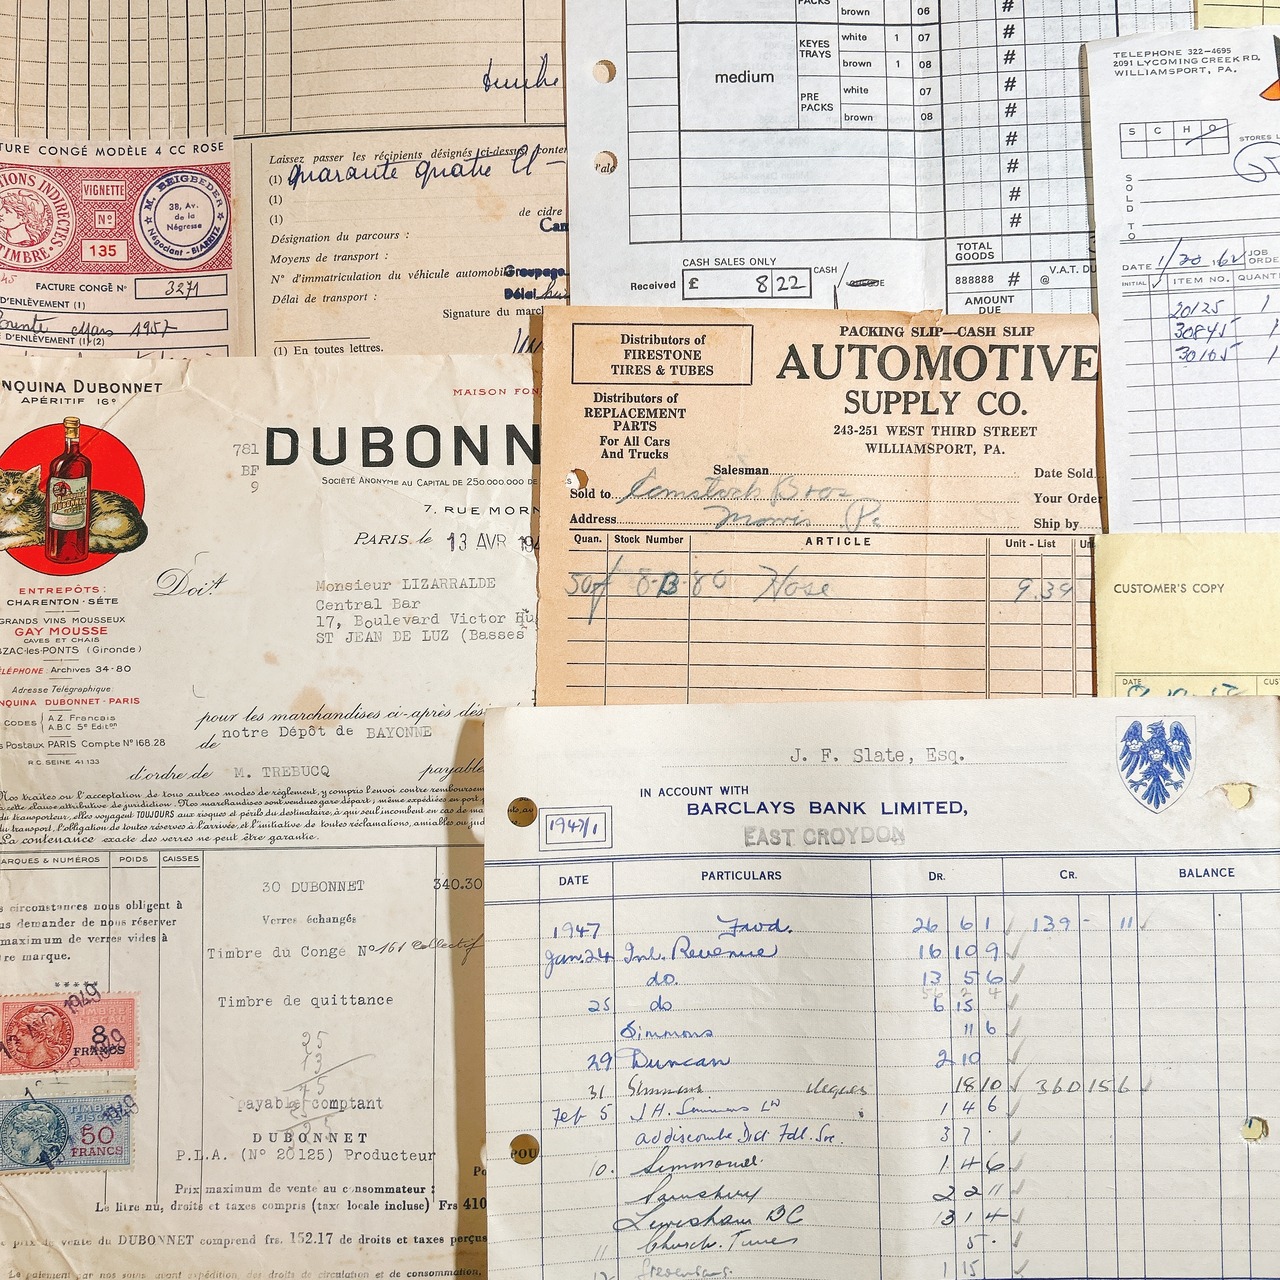 FACTURE CONGÉ MODÈLE 4 CC ROSE
VIGNETTE
No
135
M. BEIGBEDER
38, Av.
de la
Négresse
Négociant - BIARRITZ
FACTURE CONGÉ No 3271
D'ENLÈVEMENT (1)
Trente Mars 1957
D'ENLÈVEMENT (1) (2)
Laissez passer les récipients désignés ci-dessus, conten
(1) quarante quatre cl
(1)
(1)
de cidre
Désignation du parcours :
Moyens de transport :
No d'immatriculation du véhicule automobile
Groupage
Délai de transport :
Délai
Signature du march
(1) En toutes lettres.
PACKS
brown 06
medium
KEYES
TRAYS
white 1 07
brown 1 08
PRE
PACKS
white 07
brown 08
# # # # # # # # #
CASH SALES ONLY
Received £ 8 22
CASH
TOTAL
GOODS
888888 # @ V.A.T. DU
AMOUNT
DUE
TELEPHONE 322-4695
2091 LYCOMING CREEK RD.
WILLIAMSPORT, PA.
S C H O
STORES L
SOLD TO
DATE 1/30
JOB
ORDE
INITIAL ITEM NO. QUANT
20125 1
30845 1
30165 1
QUINQUINA DUBONNET
APÉRITIF 16°
MAISON FON
781
BF
9
DUBONN
SOCIÉTÉ ANONYME AU CAPITAL DE 250.000.000 DE
7, RUE MORN
PARIS, le 13 AVR 194
Doit
Monsieur LIZARRALDE
Central Bar
17, Boulevard Victor Hu
ST JEAN DE LUZ (Basses
ENTREPÔTS :
CHARENTON - SÉTE
GRANDS VINS MOUSSEUX
GAY MOUSSE
CAVES ET CHAIS
BZAC-les-PONTS (Gironde)
TÉLÉPHONE : Archives 34-80
Adresse Télégraphique
QUINQUINA DUBONNET - PARIS
CODES
A.Z. Français
A.B.C. 5e Editon
s Postaux PARIS Compte No 168.28
R.C. SEINE 41.133
pour les marchandises ci-après dési
de notre Dépôt de BAYONNE
d'ordre de M. TREBUCQ payable
Nos traites ou l'acceptation de tous autres modes de règlement, y compris l'envoi contre rembourseme
à cette clause attributive de juridiction. Nos marchandises sont vendues gare départ ; même expédiées en port
du transporteur, elles voyagent TOUJOURS aux risques et périls du destinataire, à qui seul incombent en cas de
du transport, l'obligation de toutes réserves à l'arrivée, et l'initiative de toutes réclamations, amiables ou jud
La contenance exacte des verres ne peut être garantie.
MARQUES & NUMÉROS POIDS CAISSES
30 DUBONNET 340.30
s circonstances nous obligent à
us demander de nous réserver
maximum de verres vides à
re marque.
****
Verres échangés
Timbre du Congé No 161 collectif
Timbre de quittance
8
FRANCS
1949
50
FRANCS
25
13
45
payable comptant
DUBONNET
P.L.A. (No 20125) Producteur
Prix maximum de vente au consommateur :
Le litre nu, droits et taxes compris (taxe locale incluse) Frs 410
prix de vente du DUBONNET comprend frs. 152.17 de droits et taxes perçus
PACKING SLIP—CASH SLIP
AUTOMOTIVE
SUPPLY CO.
243-251 WEST THIRD STREET
WILLIAMSPORT, PA.
Distributors of
FIRESTONE
TIRES & TUBES
Distributors of
REPLACEMENT
PARTS
For All Cars
And Trucks
Salesman
Date Sold
Sold to Comstock Bros
Your Order
Address Morris Pa
Ship by
Quan. Stock Number ARTICLE Unit - List Un
50f 8-B-80 Hose 9.39
CUSTOMER'S COPY
DATE
CUST
J. F. Slate, Esq.
IN ACCOUNT WITH
BARCLAYS BANK LIMITED,
EAST CROYDON
1947/1
DATE PARTICULARS DR. CR. BALANCE
1947 Fwd. 26 6 1 139 - 11
Jan. 24 Inl. Revenue 16 10 9
do. 13 5 6
25 do 6 15
Simmons 11 6
29 Duncan 2 10
31 Simmons cheques 18 10 360 15 6
Feb 5 J.H. Simmons Ld 1 4 6
Addiscombe Dct Fdl. Soc. 3 7
10. Simmonds 1 4 6
Sainsbury 2 2 11
Lewisham BC 13 1 4
11 Church Times 5
1 15